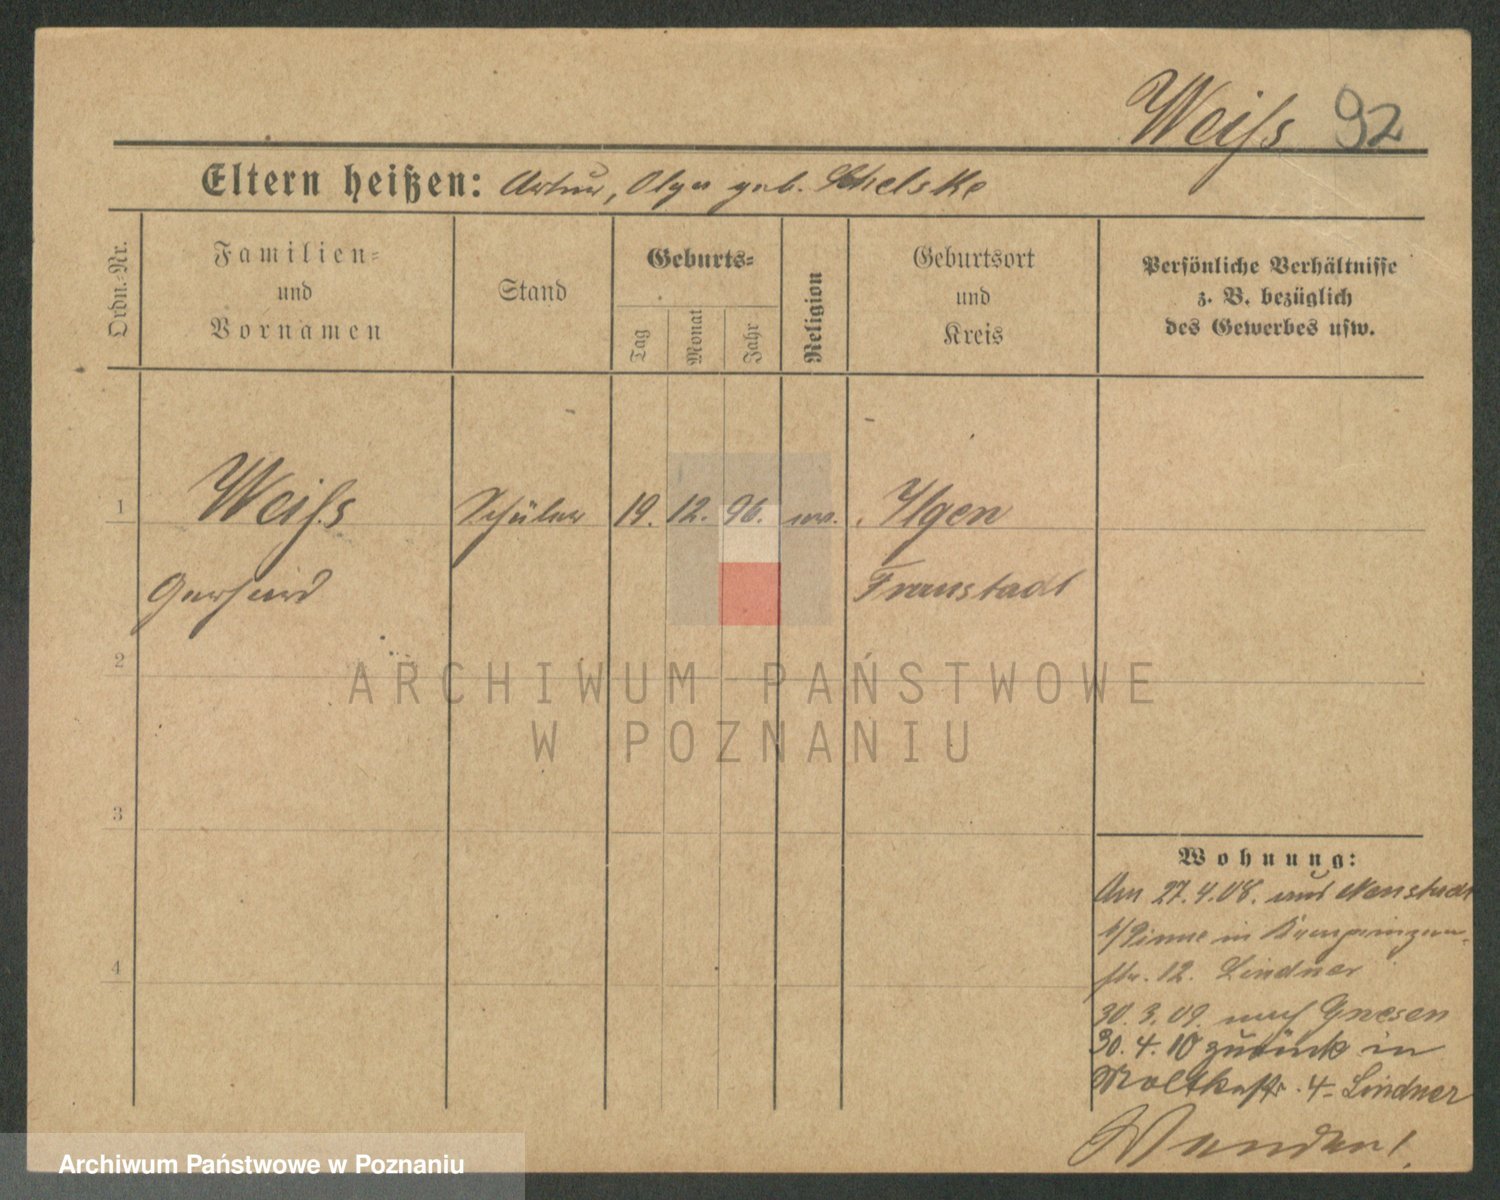 Weiß 92
Eltern heißen: Artur, Olga geb. Schelske
Ordn.-Nr.
Familien-
und
Vornamen
Stand
Geburts-
Tag
Monat
Jahr
Religion
Geburtsort
und
Kreis
Persönliche Verhältnisse
z. B. bezüglich
des Gewerbes usw.
1 Weiß Schüler 19. 12. 96. ev. Ilgen
Gerhard Fraustadt
2
ARCHIWUM PAŃSTWOWE
W POZNANIU
3
4
Wohnung:
Am 27.4.08. aus Neustadt
b/Pinne in Kronprinzen-
str. 12. Lindner
30. 3. 09. nach Gnesen
30. 4. 10 zurück in
Moltkestr. 4 - Lindner
Wenden!
Archiwum Państwowe w Poznaniu